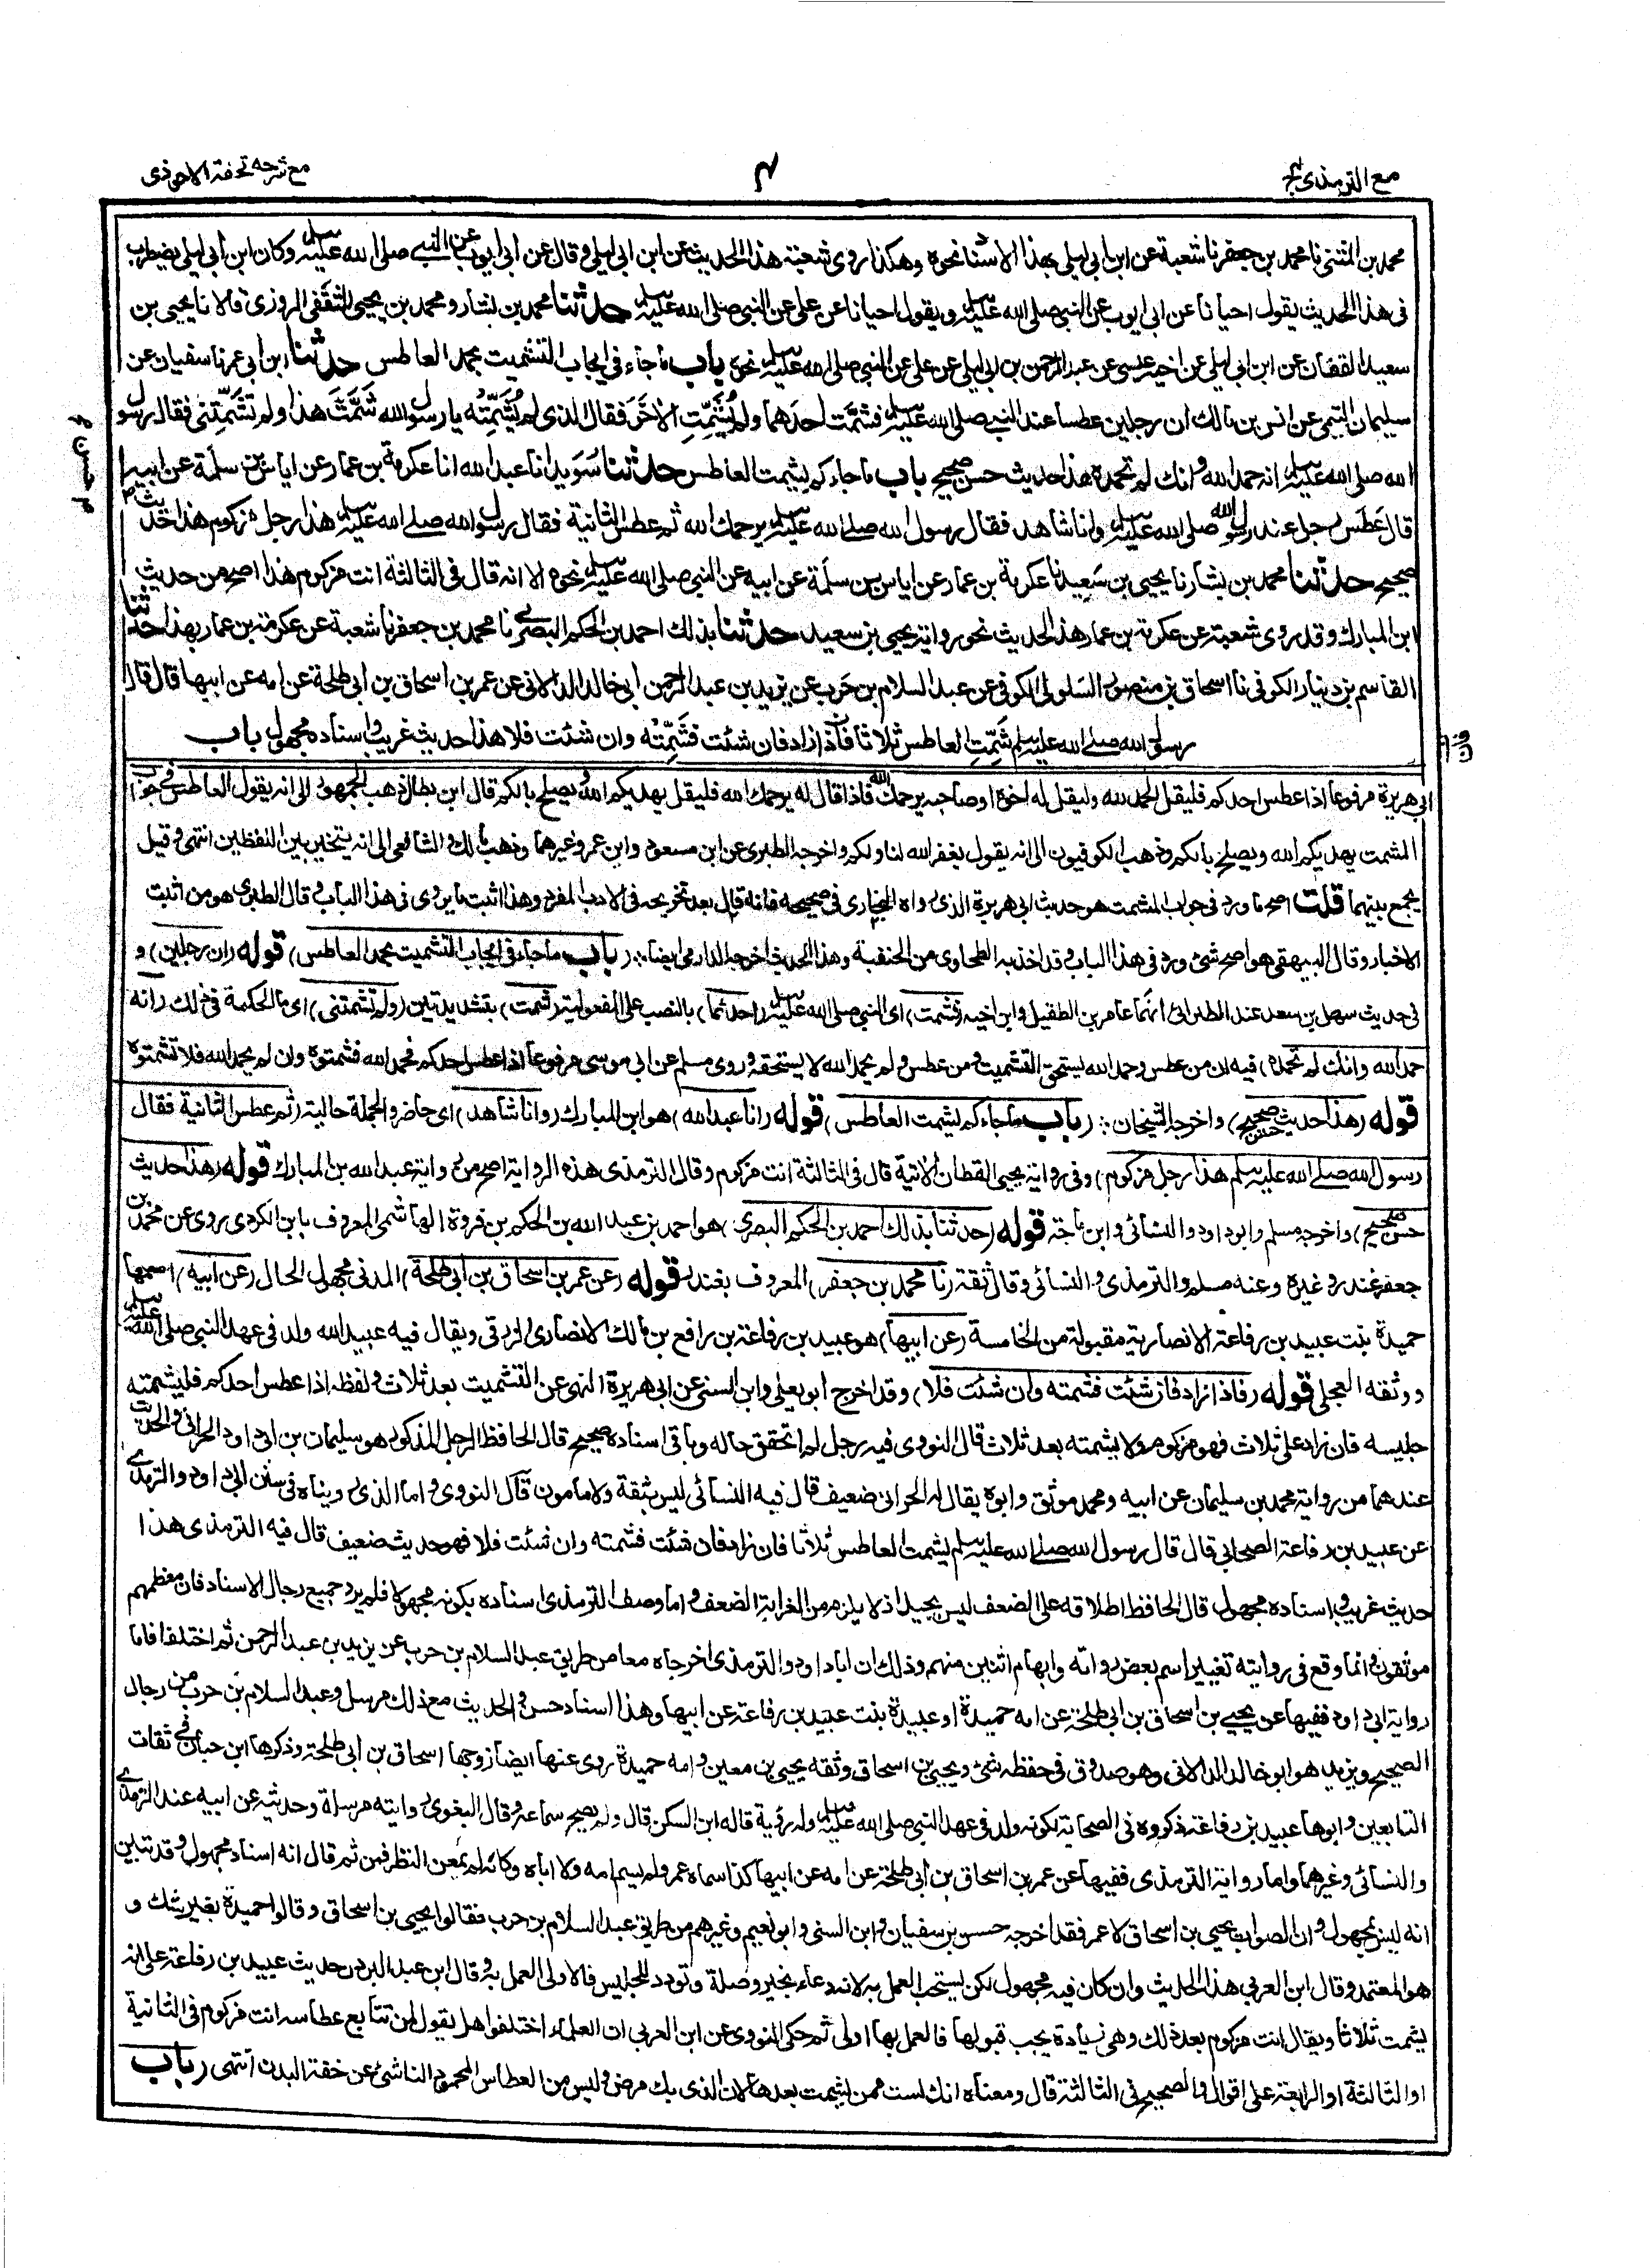 مع الترمذي ج۴
۴
مع شرحه تحفة الاحوذى
محمد بن المثنى نا محمد بن جعفر نا شعبة عن ابن ابى ليلى بهذا الاسناد نحوه وهكذا روى شعبة هذا الحديث عن ابن ابى ليلى وقال عن ابى ايوب عن النبى صلى الله عليه وسلم وكان ابن ابى ليلى يضطرب
فى هذا الحديث يقول احيانا عن ابى ايوب عن النبى صلى الله عليه وسلم ويقول احيانا عن على عن النبى صلى الله عليه وسلم حدثنا محمد بن بشار ومحمد بن يحيى الثقفى المروزى قالا نا يحيى بن
سعيد القطان عن ابن ابى ليلى عن اخيه عيسى عن عبد الرحمن بن ابى ليلى عن على عن النبى صلى الله عليه وسلم نحوه باب ما جاء فى ايجاب التشميت بحمد العاطس حدثنا ابن ابى عمر نا سفيان عن
سليمان التيمى عن انس بن مالك ان رجلين عطسا عند النبى صلى الله عليه وسلم فشمَّت احدَهما ولم يُشَمِّتِ الآخَرَ فقال الذى لم يُشَمِّتْه يا رسول الله شَمَّتَّ هذا ولم تُشَمِّتْنى فقال رسول
الله صلى الله عليه وسلم انه حمد الله وانك لم تحمده هذا حديث حسن صحيح باب ما جاء كم يشمت العاطس حدثنا سُوَيد انا عبد الله انا عكرمة بن عمار عن اياس بن سلمة عن ابيه
قال عَطَسَ رجل عند رسول الله صلى الله عليه وسلم وانا شاهد فقال رسول الله صلى الله عليه وسلم يرحمك الله ثم عطس الثانية فقال رسول الله صلى الله عليه وسلم هذا رجل مزكوم هذا حديث حسن
صحيح حدثنا محمد بن بشار نا يحيى بن سَعِيد نا عكرمة بن عمار عن اياس بن سلمة عن ابيه عن النبى صلى الله عليه وسلم نحوه الا انه قال فى الثالثة انت مزكوم هذا اصح من حديث
ابن المبارك وقد روى شعبة عن عكرمة بن عمار هذا الحديث نحو رواية يحيى بن سعيد حدثنا بذلك احمد بن الحكم البصرى نا محمد بن جعفر نا شعبة عن عكرمة بن عمار بهذا حدثنا
القاسم بن دينار الكوفى نا اسحاق بن منصور السَلولى الكوفى عن عبد السلام بن حَرب عن يزيد بن عبد الرحمن ابى خالد الدالانى عن عمر بن اسحاق بن ابى طلحة عن امه عن ابيها قال قال
رسول الله صلى الله عليه وسلم شَمِّتِ العاطس ثلاثا فاذا زاد فان شئت فشَمِّتْه وان شئت فلا هذا حديث غريب واسناده مجهول باب
ابى هريرة مرفوعا اذا عطس احدكم فليقل الحمد لله وليقل له اخوه او صاحبه يرحمك الله فاذا قال له يرحمك الله فليقل يهديكم الله ويصلح بالكم قال ابن بطال ذهب الجمهور الى انه يقول العاطس فى جواب
المشمت يهديكم الله ويصلح بالكم وذهب الكوفيون الى انه يقول يغفر الله لنا ولكم واخرجه الطبرى عن ابن مسعود وابن عمر وغيرهما وذهب مالك والشافعى الى انه يتخير بين اللفظين انتهى وقيل
يجمع بينهما قلت اصح ما ورد فى جواب المشمت هو حديث ابى هريرة الذى رواه البخارى فى صحيحه فانه قال بعد تخريجه فى الادب المفرد وهذا اثبت ما يروى فى هذا الباب وقال الطبرى هو من اثبت
الاخبار وقال البيهقى هو اصح شئ ورد فى هذا الباب وقد اخذ به الطحاوى من الحنفية وهذا الحديث اخرجه الدارمى ايضا: (باب ما جاء فى ايجاب التشميت بحمد العاطس) قوله (ان رجلين) و
فى حديث سهل بن سعد عند الطبرانى انهما عامر بن الطفيل وابن اخيه (فشمت) اى النبى صلى الله عليه وسلم (احدهما) بالنصب على المفعولية (شمت) بتشديدتين (ولم تشمتنى) اى ما الحكمة فى ذلك (انه
حمد الله وانك لم تحمده) فيه ان من عطس وحمد الله يستحق التشميت ومن عطس ولم يحمد الله لا يستحقه وروى مسلم عن ابى موسى مرفوعا اذا عطس احدكم فحمد الله فشمتوه وان لم يحمد الله فلا تشمتوه
قوله (هذا حديث حسن صحيح) واخرجه الشيخان: (باب ما جاء كم يشمت العاطس) قوله (انا عبد الله) هو ابن المبارك (وانا شاهد) اى حاضر والجملة حالية (ثم عطس الثانية فقال
رسول الله صلى الله عليه وسلم هذا رجل مزكوم) وفى رواية يحيى القطان الاتية قال فى الثالثة انت مزكوم وقال الترمذى هذه الرواية اصح من رواية عبد الله بن المبارك قوله (هذا حديث
حسن صحيح) واخرجه مسلم وابو داود والنسائى وابن ماجة قوله (حدثنا بذلك احمد بن الحكم البصرى) هو احمد بن عبد الله بن الحكم بن فروة الهاشمى المعروف بابن الكردى روى عن محمد بن
جعفر غندر وغيره وعنه مسلم والترمذى والنسائى وقال ثقة (نا محمد بن جعفر) المعروف بغندر قوله (عن عمر بن اسحاق بن ابى طلحة) المدنى مجهول الحال (عن ابيه) اسمها
حميدة بنت عبيد بن رفاعة الانصارية مقبولة من الخامسة (عن ابيها) هو عبيد بن رفاعة بن رافع بن مالك الانصارى الزرقى ويقال فيه عبيد الله ولد فى عهد النبى صلى الله عليه وسلم
ووثقه العجلى قوله (فاذا زاد فان شئت فشمته وان شئت فلا) وقد اخرج ابو يعلى وابن السنى عن ابى هريرة النهى عن التشميت بعد ثلاث ولفظه اذا عطس احدكم فليشمته
جليسه فان زاد على ثلاث فهو مزكوم ولا يشمته بعد ثلاث قال النووى فيه رجل لم اتحقق حاله وباقى اسناده صحيح قال الحافظ الرجل المذكور هو سليمان بن ابى داود الحرانى والحديث
عندهما من رواية محمد بن سليمان عن ابيه ومحمد موثق وابوه يقال له الحرانى ضعيف قال فيه النسائى ليس بثقة ولا مامون قال النووى واما الذى رويناه فى سنن ابى داود والترمذى
عن عبيد بن رفاعة الصحابى قال قال رسول الله صلى الله عليه وسلم يشمت العاطس ثلاثا فان زاد فان شئت فشمته وان شئت فلا فهو حديث ضعيف قال فيه الترمذى هذا
حديث غريب واسناده مجهول قال الحافظ اطلاقه على الضعف ليس بجيد اذ لا يلزم من الغرابة الضعف واما وصف الترمذى اسناده بكونه مجهولا فلم يرد جميع رجال الاسناد فان معظمهم
موثقون وانما وقع فى روايته تغيير اسم بعض رواته وابهام اثنين منهم وذلك ان ابا داود والترمذى اخرجاه معا من طريق عبد السلام بن حرب عن يزيد بن عبد الرحمن ثم اختلفا فاما
رواية ابى داود ففيها عن يحيى بن اسحاق بن ابى طلحة عن امه حميدة او عبيدة بنت عبيد بن رفاعة عن ابيها وهذا اسناد حسن والحديث مع ذلك مرسل وعبد السلام بن حرب من رجال
الصحيح ويزيد هو ابو خالد الدالانى وهو صدوق فى حفظه شئ ويحيى بن اسحاق وثقه يحيى بن معين وامه حميدة روى عنها ايضا زوجها اسحاق بن ابى طلحة وذكرها ابن حبان فى ثقات
التابعين وابوها عبيد بن رفاعة ذكروه فى الصحابة لكونه ولد فى عهد النبى صلى الله عليه وسلم وله رؤية قاله ابن السكن قال ولم يصح سماعه وقال البغوى روايته مرسلة وحديثه عن ابيه عند الترمذى
والنسائى وغيرهما واما رواية الترمذى ففيها عن عمر بن اسحاق بن ابى طلحة عن امه عن ابيها كذا سماه عمر ولم يسم امه ولا اباه وكانه لم يمعن النظر فمن ثم قال انه اسناد مجهول وقد تبين
انه ليس بمجهول وان الصواب يحيى بن اسحاق لا عمر فقد اخرجه حسن بن سفيان وابن السنى وابو نعيم وغيرهم من طريق عبد السلام بن حرب فقالوا يحيى بن اسحاق وقالوا حميدة بغير شك و
هو المعتمد وقال ابن العربى هذا الحديث وان كان فيه مجهول لكن يستحب العمل به لانه دعاء بخير وصلة وتودد للجليس فالاولى العمل به وقال ابن عبد البر دل حديث عبيد بن رفاعة على انه
يشمت ثلاثا ويقال انت مزكوم بعد ذلك وهى زيادة يجب قبولها فالعمل بها اولى ثم حكى النووى عن ابن العربى ان العلماء اختلفوا هل يقول لمن تتابع عطاسه انت مزكوم فى الثانية
او الثالثة او الرابعة على اقوال والصحيح فى الثالثة قال ومعناه انك لست ممن يشمت بعدها لان الذى بك مرض وليس من العطاس المحمود الناشئ عن خفة البدن انتهى (باب